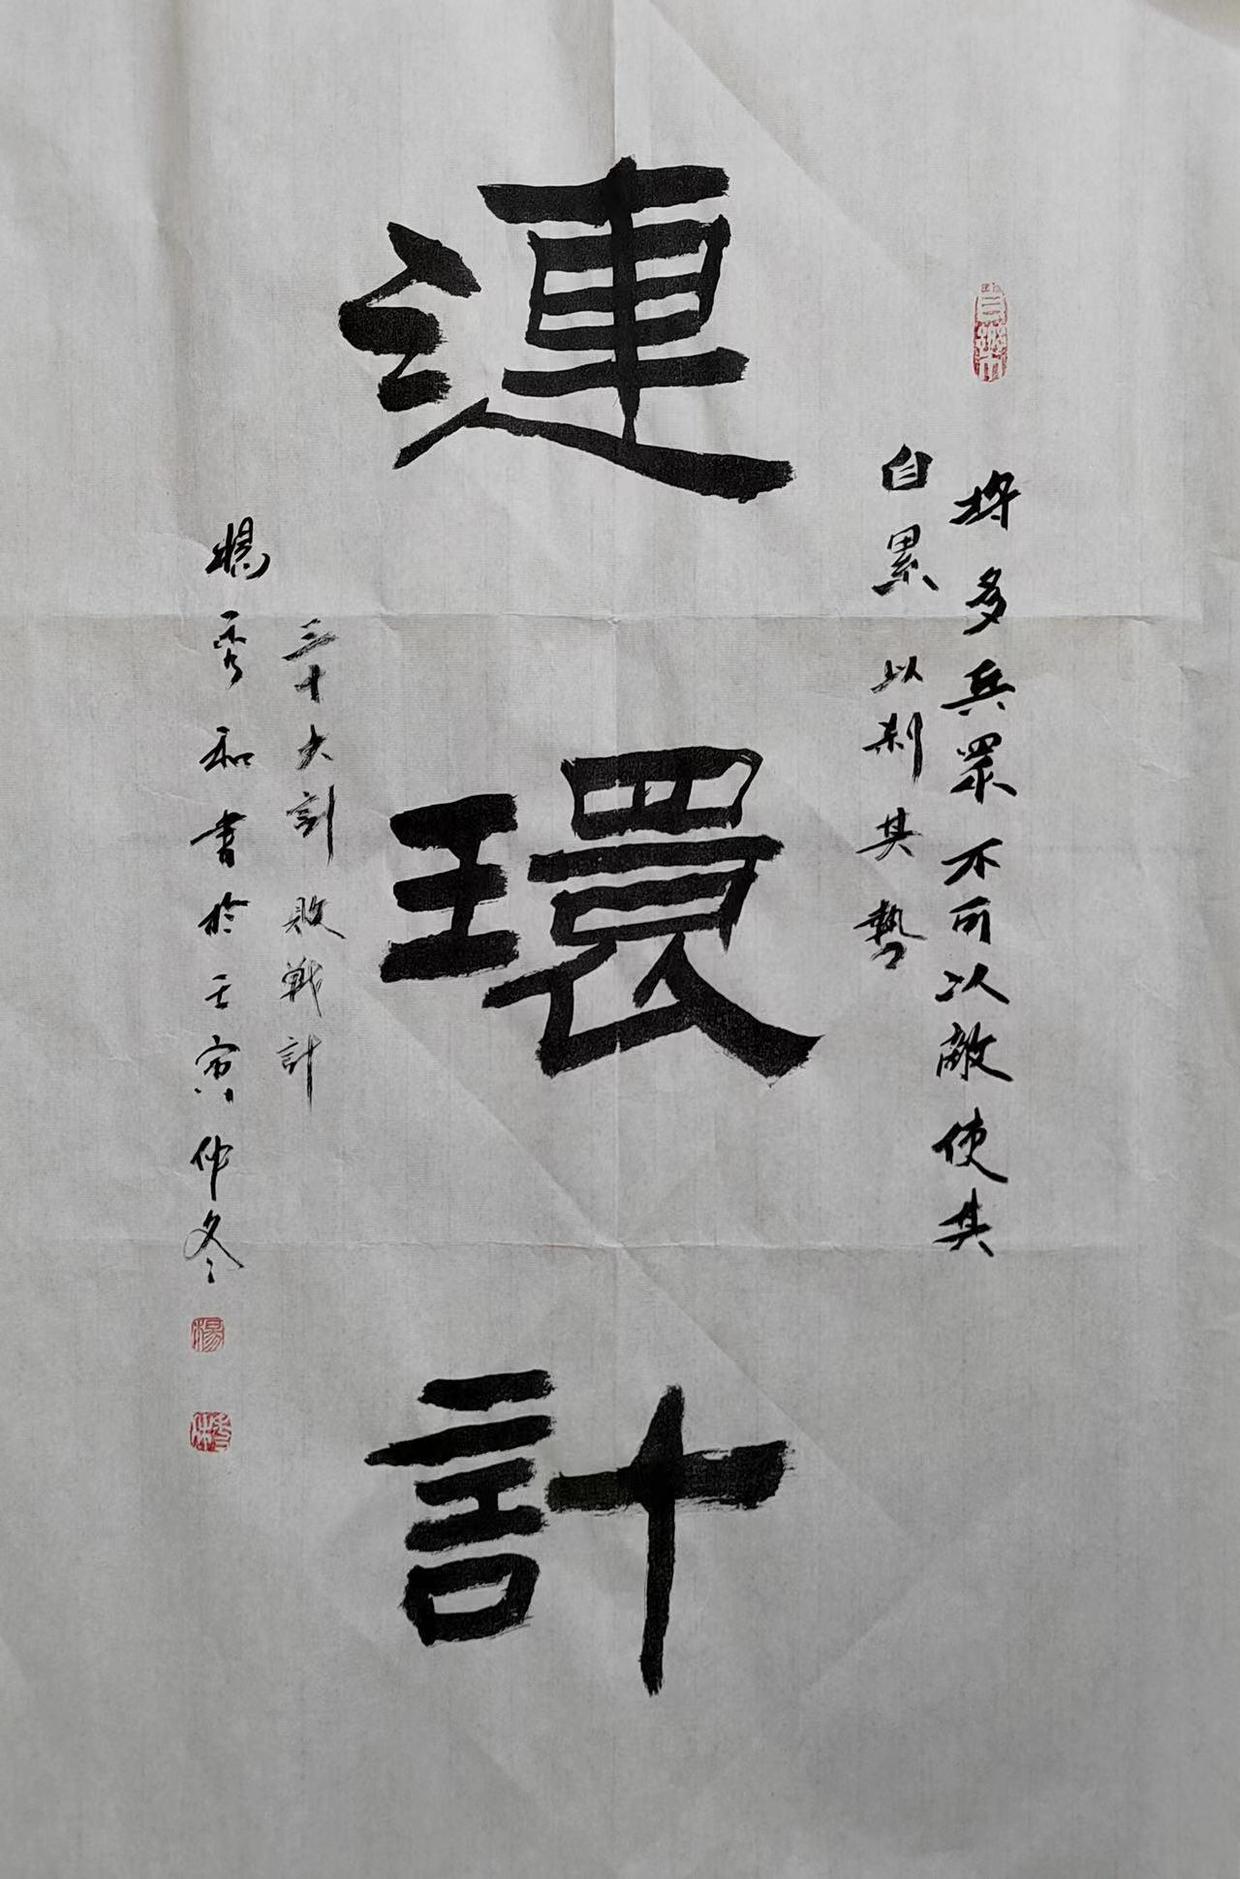 連環計
將多兵眾不可以敵使其
自累以刹其勢
三十大計敗戰計
楊秀和書於壬寅仲冬
楊